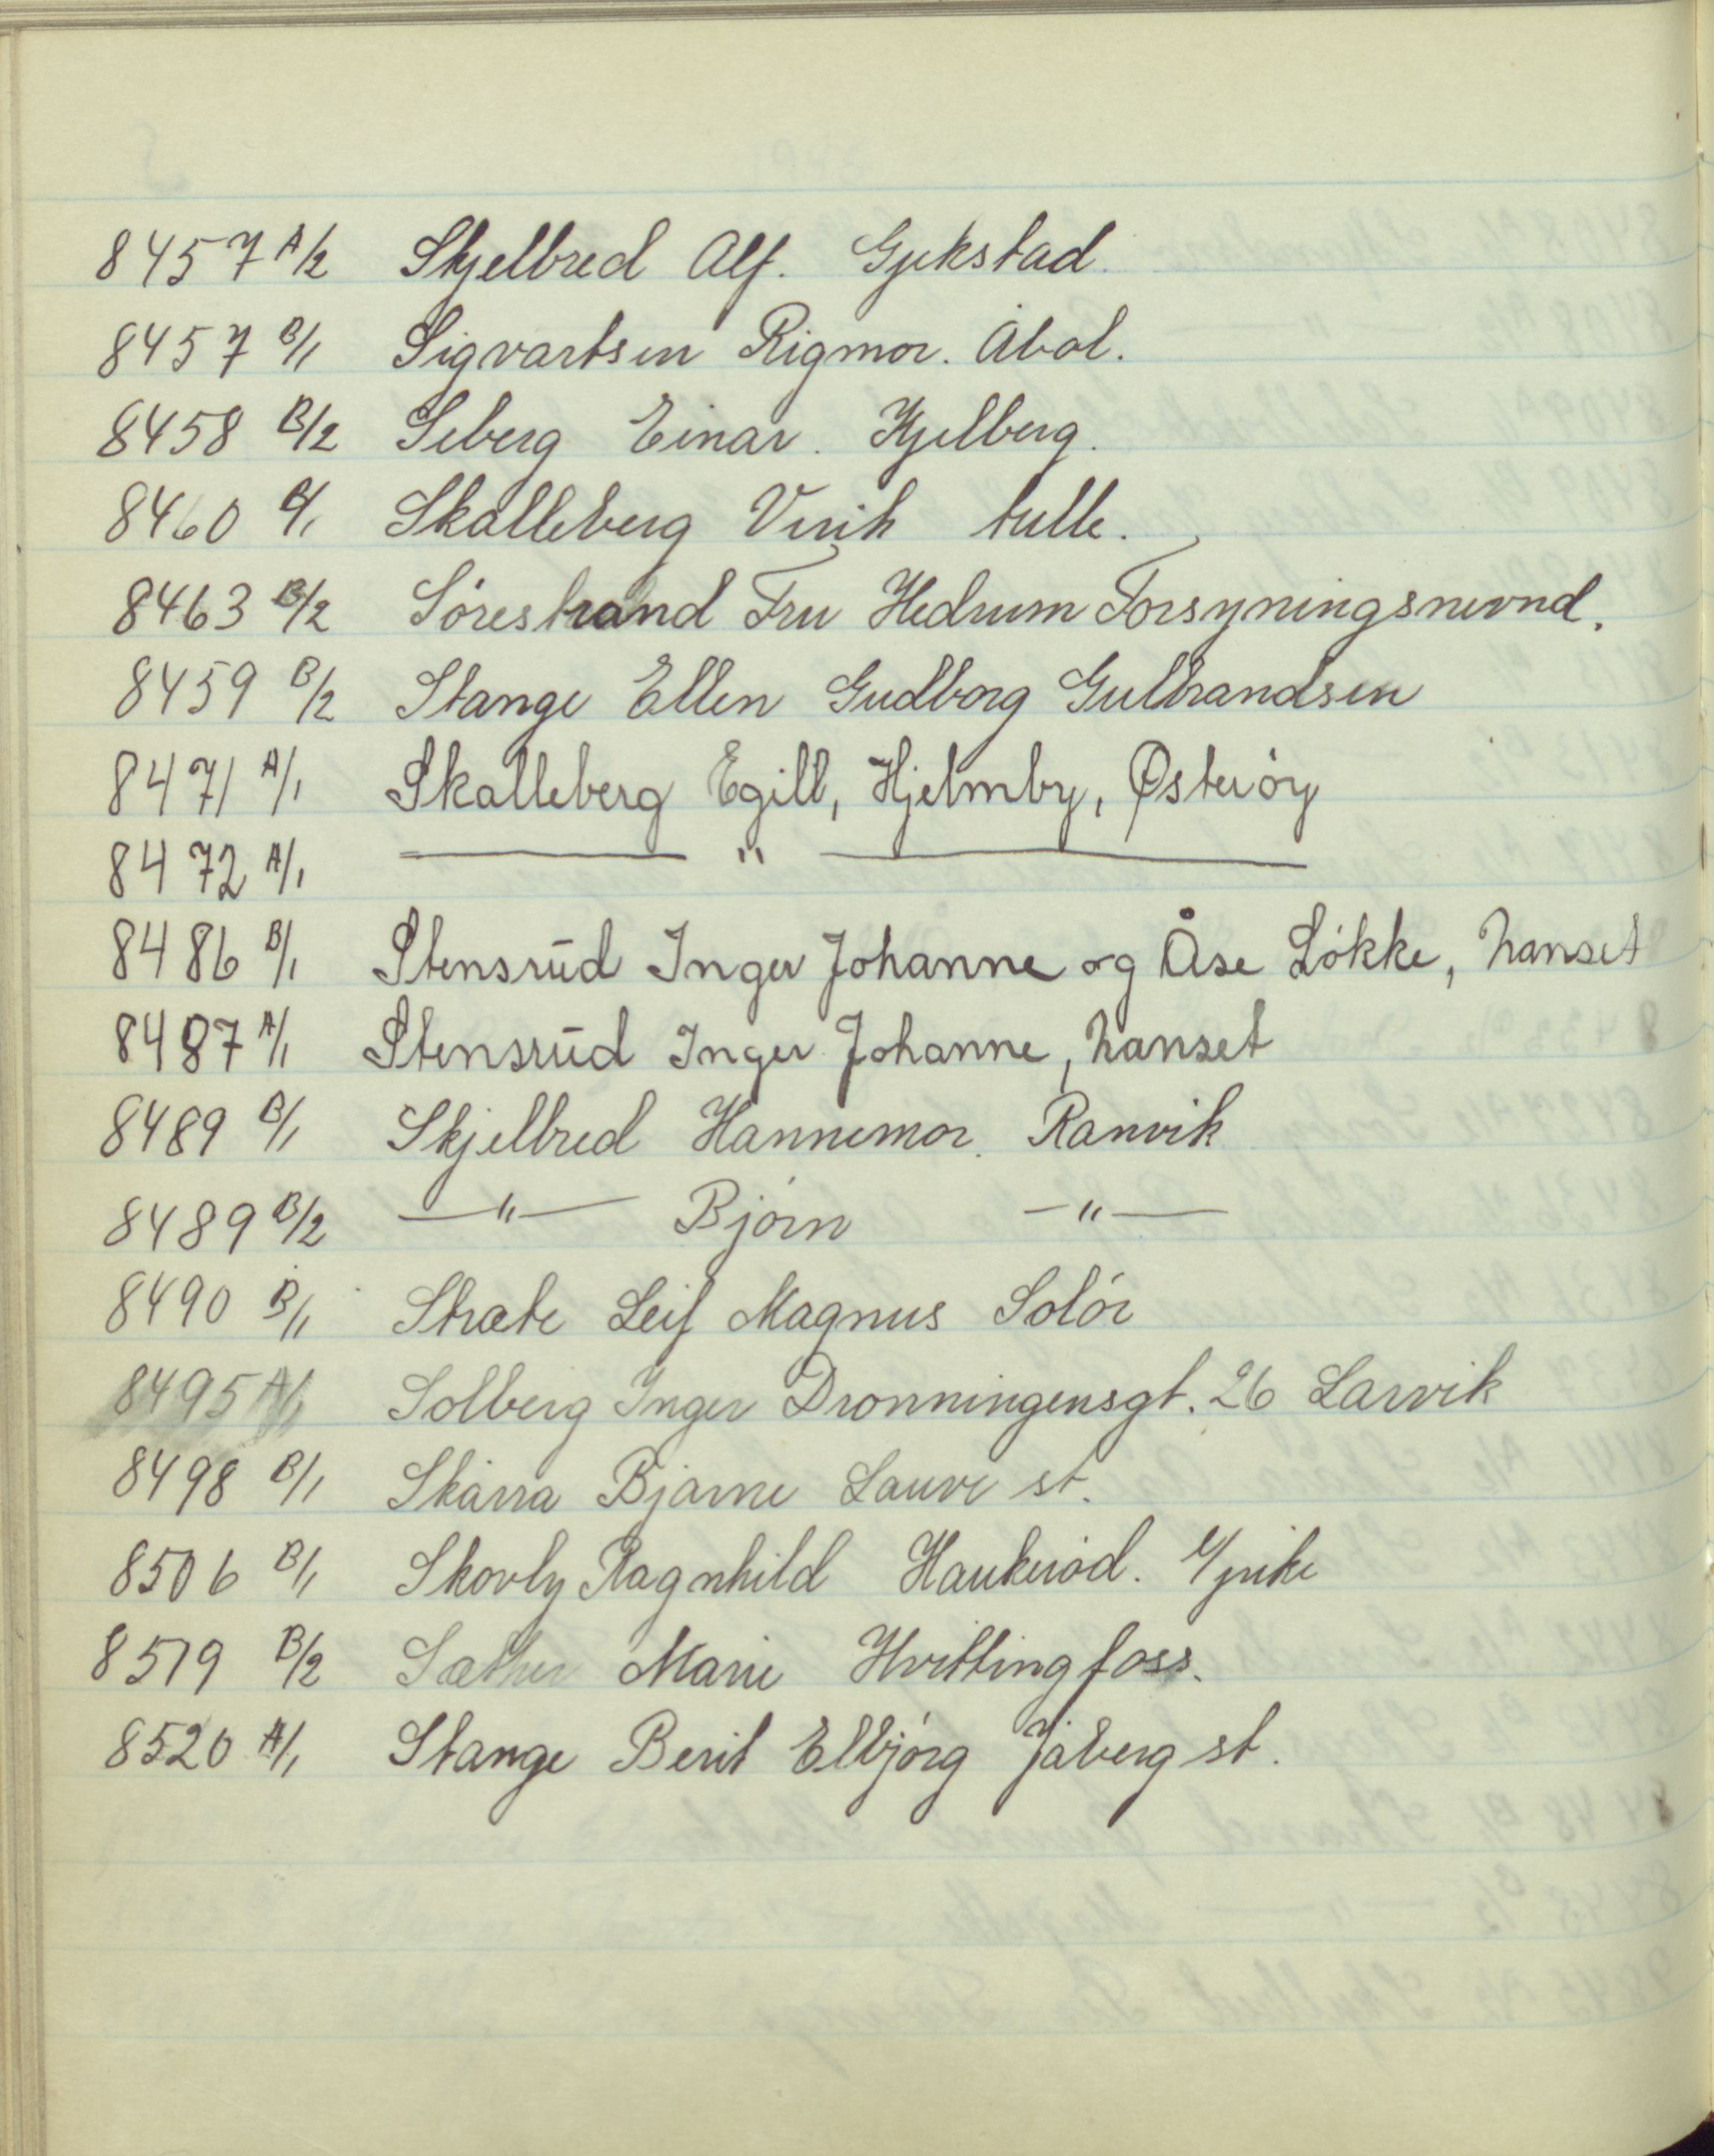 8457 A/2 Skjelbred Alf. Gjekstad.
8457 B/1 Sigvartsen Rigmor. Åbol.
8458 B/2 Seberg Einar. Hjelberg.
8460 B/1 Skalleberg Virik tulle.
8463 B/2 Sörestrand Fru Hedrum Forsyningsnevnd.
8459 B/2 Stange Ellen Gudborg Gulbrandsen
8471 A/1 Skalleberg Egill, Hjelmby, Østeröy
8472 A/1 — " —
8486 B/1 Stensrud Inger Johanne og Åse Lökke, hanset
8487 A/1 Stensrud Inger Johanne, hanset
8489 B/1 Skjelbred Hannemor. Ranvik
8489 B/2 —"— Björn —"—
8490 B/1 Stræte Leif Magnus Solör
8495 A/1 Solberg Inger Dronningensgt. 26 Larvik
8498 B/1 Skårra Bjarne Lauve st.
8506 B/1 Skovly Ragnhild Haukeröd.
8519 B/2 Sæther Marie Hvittingfoss.
8520 A/1 Stange Berit Elbjörg Jåberg st.